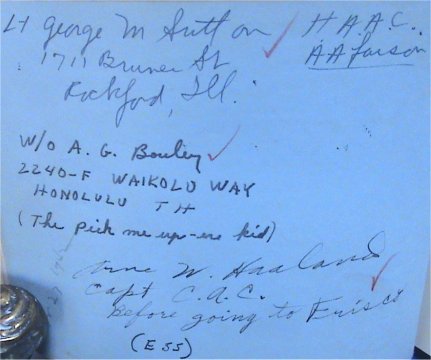 Lt George M Sutton
H A.A.C.
1711 Bruner St
Rockford, Ill.
W/O A. G. Bouley
2240-F WAIKOLU WAY
HONOLULU T H
(The pick me up-ere kid)
Arne W. Haaland
Capt C.A.C.
before going to Frisco
(ESS)